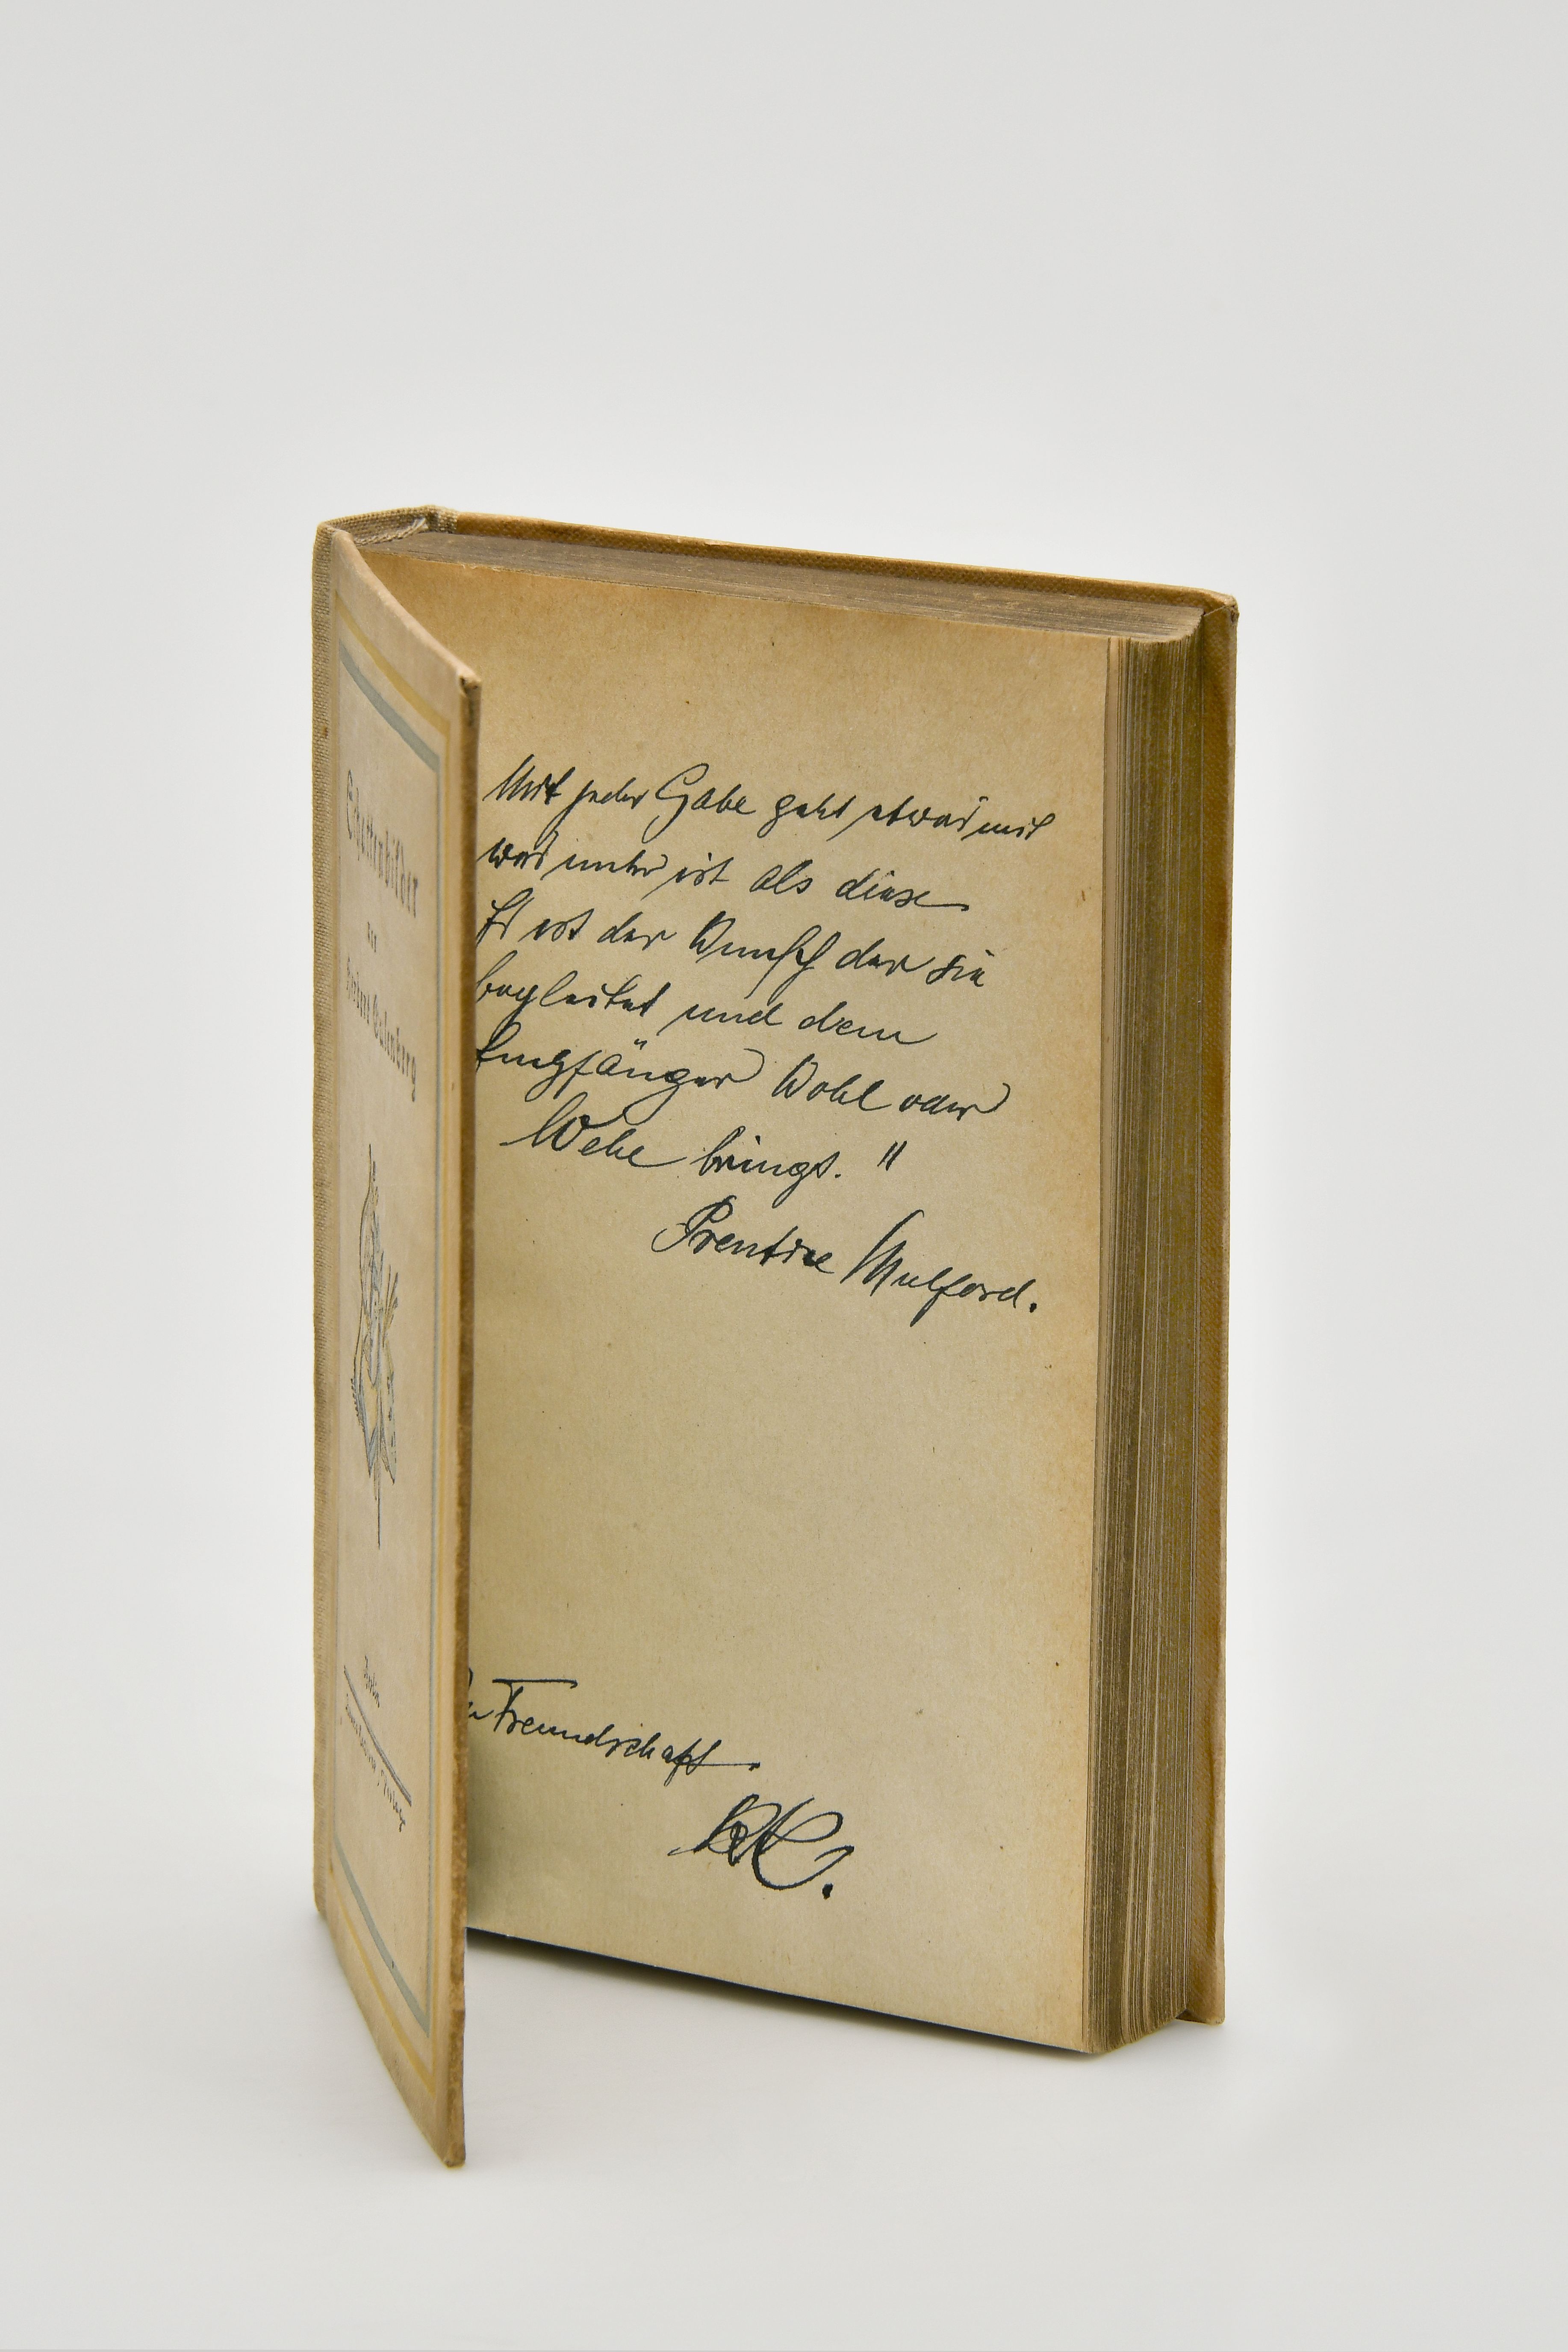 Schattenbilder
von
Herbert Eulenberg
Berlin
Mit jeder Gabe geht etwas mit
was mehr ist als diese
Es ist der Wunsch der sie
begleitet und dem
Empfänger Wohl oder
Wehe bringt. "
Prentice Mulford.
Freundschaft